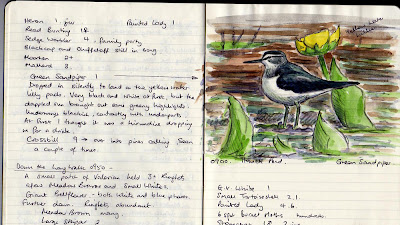 Heron 1 juv Painted Lady 1
Reed Bunting 1♀
Sedge Warbler 4 family party
Blackcap and Chiffchaff still in song
Marten 2+
Mallard 3
Green Sandpiper 1
Dropped in silently to land on the yellow water
lilly pads. Very black and white at first, but the
dappled sun brought out some greeny highlights.
Underwings blackish, contrasting with underparts
At first I thought it was a hirundine dropping
in for a drink
Crossbill 9 → over into pines calling. Seen
a couple of times
Down the Laytrack 0950 -
A small patch of Valerian held 3+ Ringlets
also Meadow Browns and Small Whites.
Giant Bellflower - both white and blue forms.
Further down - Ringlets abundant
Meadow Brown many
Large Skipper 2
Yellow Water
0900. Pond.
Green Sandpiper
G.v. White 1
Small Tortoiseshell 21.
Painted Lady 46.
6 spot Burnet Moths hundreds.